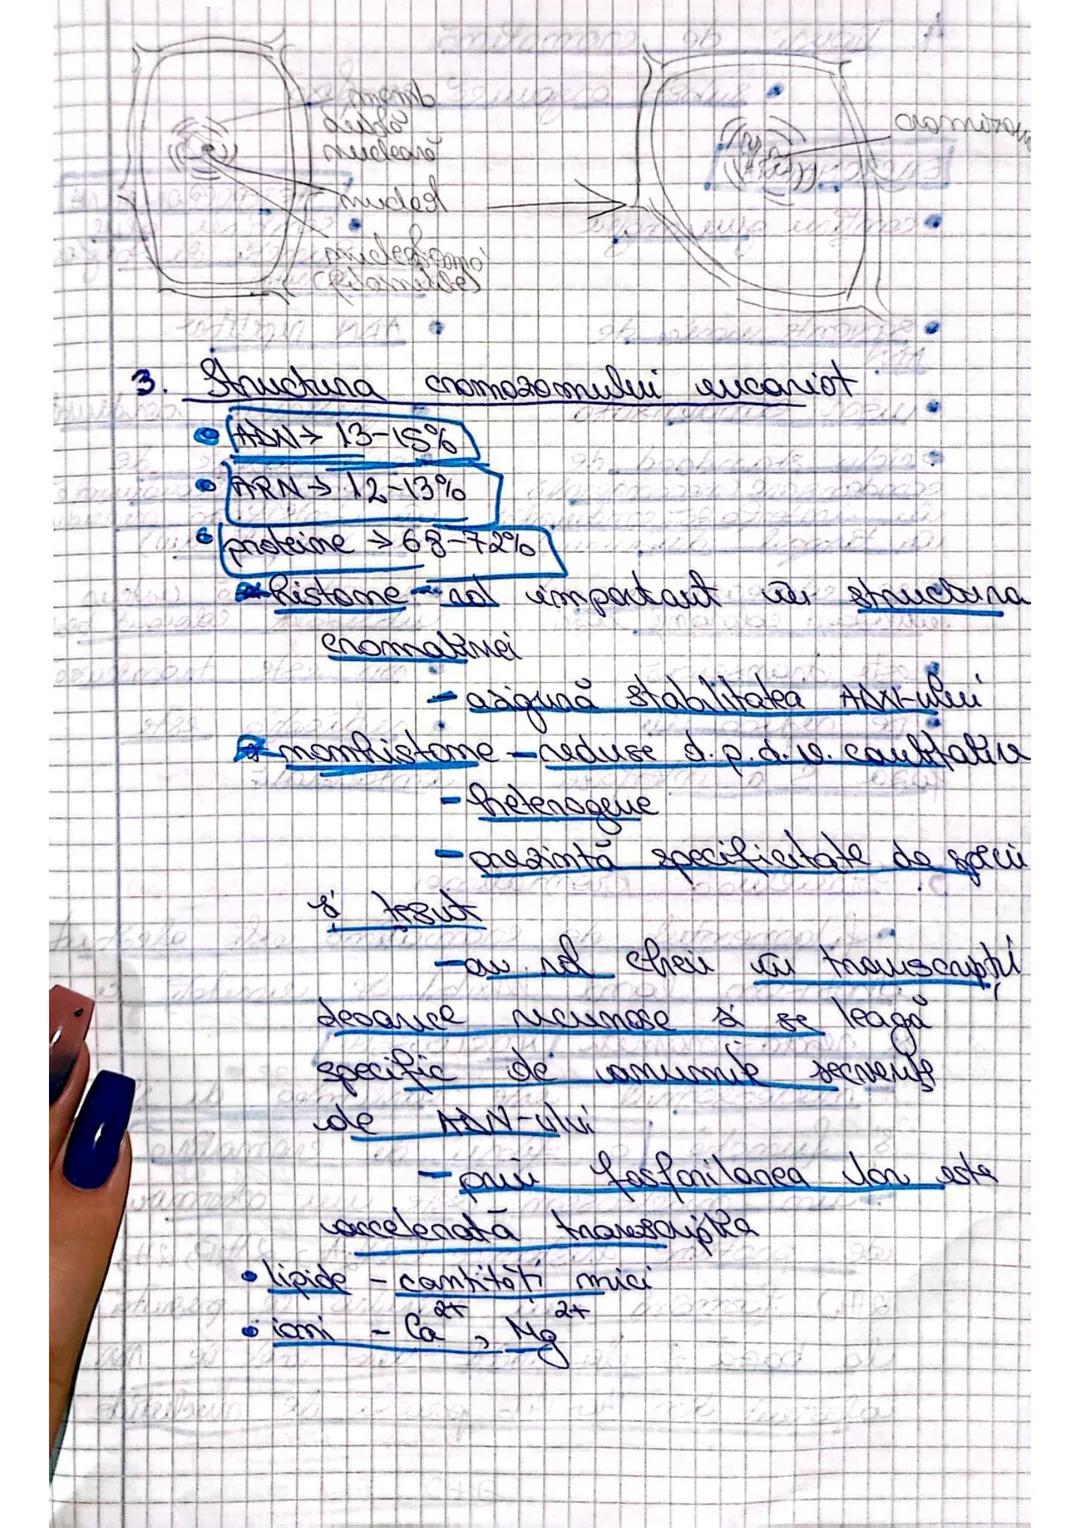 memb
dublă
nucleară
nucleol
cromozom
3. Structura cromozomului eucariot
• ADN → 13-15%
• ARN → 12-13%
• proteine → 68-72%
histone - rol important în structura
cromatinei
- asigură stabilitatea ADN-ului
nonhistone - reduse d.p.d.v. cantitativ
- heterogene
- prezintă specificitate de specii
și țesut
- au rol cheie în transcripție
deoarece recunosc și se leagă
specific de anumite secvențe
de ADN-ului
- prin fosforilarea lor este
accelerată transcripția
• lipide - cantități mici
• ioni - Ca²⁺, Mg²⁺